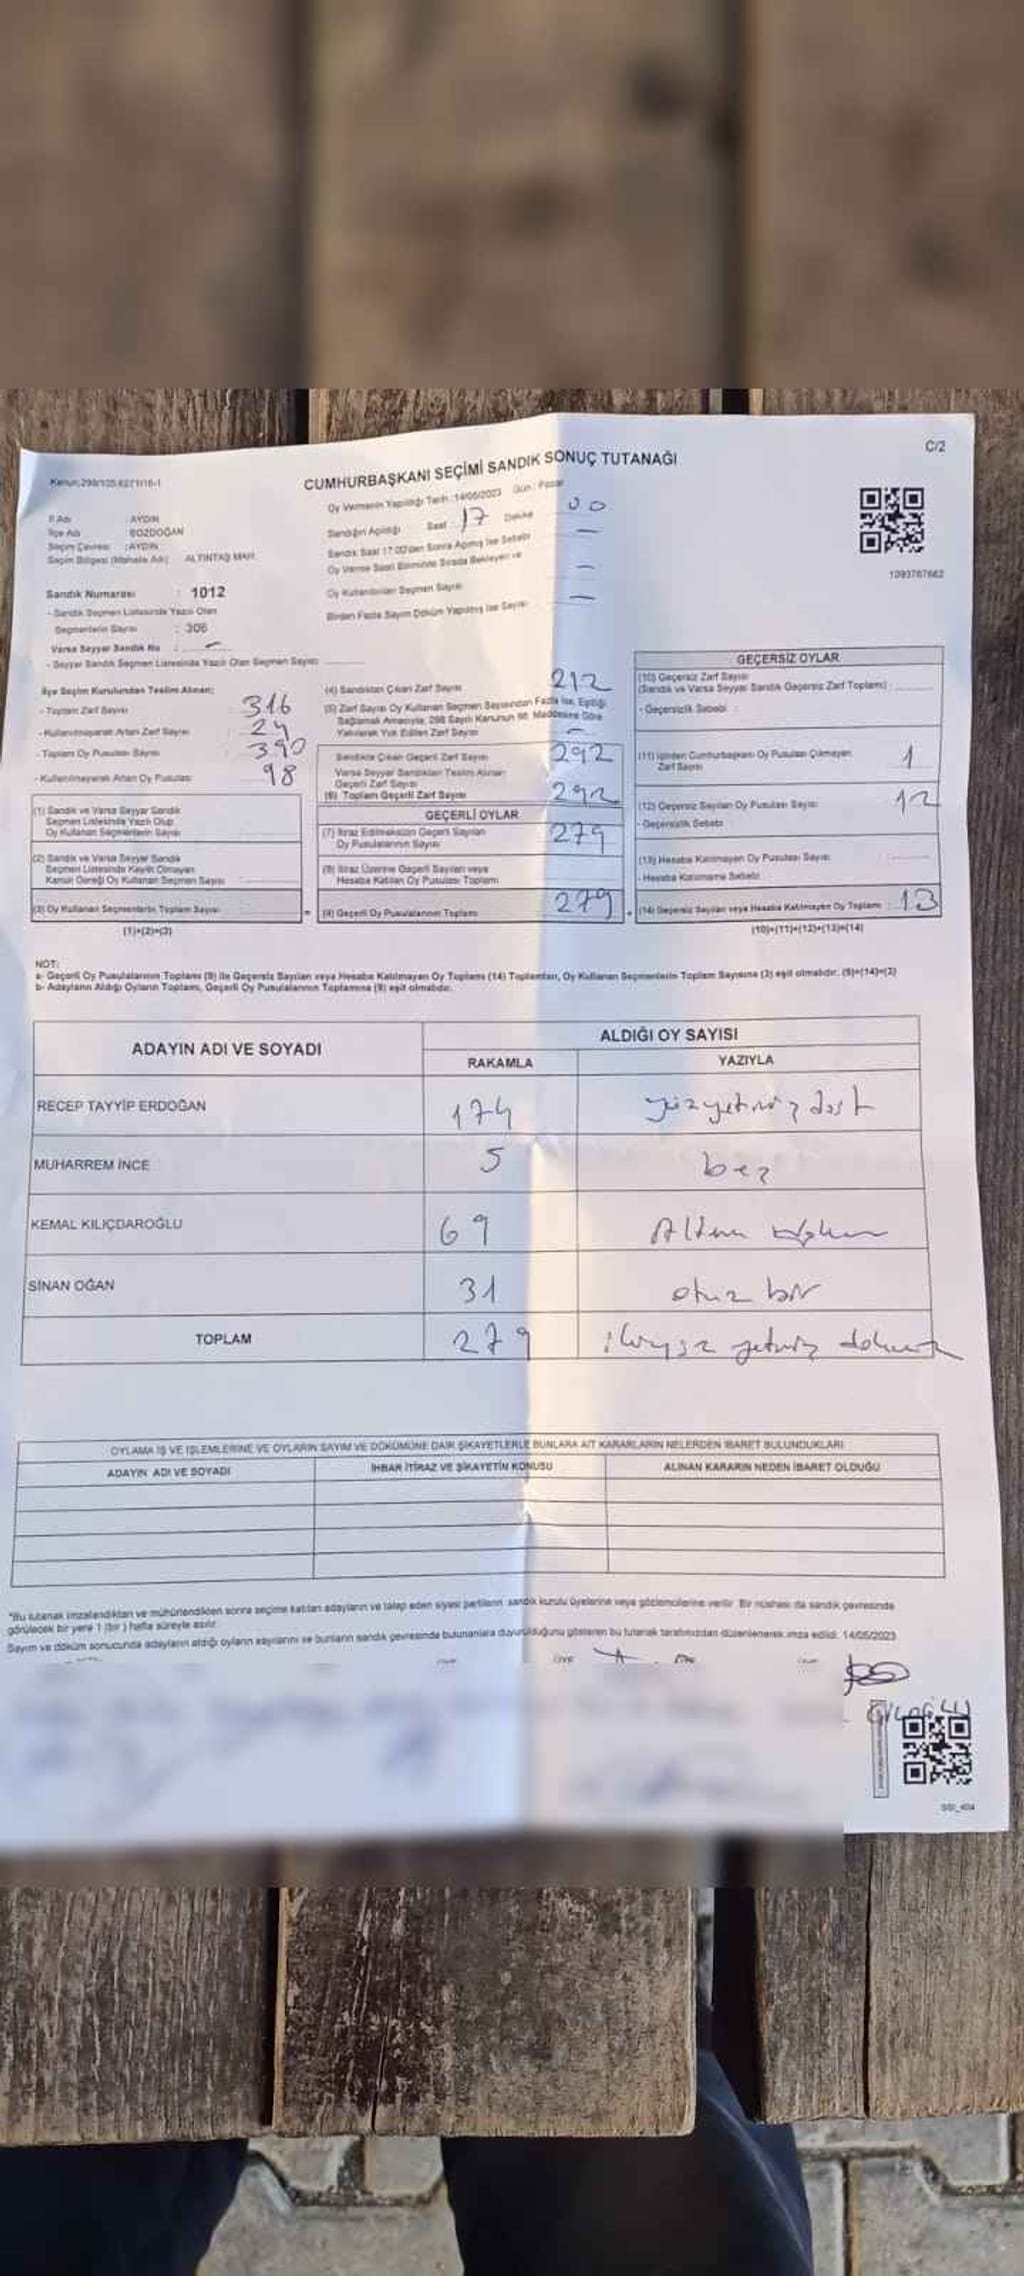 C/2
CUMHURBAŞKANI SEÇİMİ SANDIK SONUÇ TUTANAĞI
Oy Vermenin Yapıldığı Tarih :14/05/2023 Gün : Pazar
İl Adı : AYDIN
İlçe Adı : BOZDOĞAN
Seçim Çevresi : AYDIN
Seçim Bölgesi (Mahalle Adı) : ALTINTAŞ MAH.
Sandığın Açıldığı Saat 17 Dakika 00
Sandık Saat 17.00'den Sonra Açılmış İse Sebebi —
Oy Verme Saati Bitiminde Sırada Bekleyen ve
Oy Kullandırılan Seçmen Sayısı —
Birden Fazla Sayım Döküm Yapılmış İse Sayısı —
1093767662
Sandık Numarası : 1012
- Sandık Seçmen Listesinde Yazılı Olan
Seçmenlerin Sayısı : 306
Varsa Seyyar Sandık No : —
- Seyyar Sandık Seçmen Listesinde Yazılı Olan Seçmen Sayısı
İlçe Seçim Kurulundan Teslim Alınan;
- Toplam Zarf Sayısı 316
- Kullanılmayarak Artan Zarf Sayısı 24
- Toplam Oy Pusulası Sayısı 390
- Kullanılmayarak Artan Oy Pusulası 98
(1) Sandık ve Varsa Seyyar Sandık
Seçmen Listesinde Yazılı Olup
Oy Kullanan Seçmenlerin Sayısı
(2) Sandık ve Varsa Seyyar Sandık
Seçmen Listesinde Kayıtlı Olmayan
Kanun Gereği Oy Kullanan Seçmen Sayısı
(3) Oy Kullanan Seçmenlerin Toplam Sayısı
(1)+(2)=(3)
(4) Sandıktan Çıkan Zarf Sayısı 212
(5) Zarf Sayısı Oy Kullanan Seçmen Sayısından Fazla İse, Eşitliği
Sağlamak Amacıyla, 298 Sayılı Kanunun 98. Maddesine Göre
Yakılarak Yok Edilen Zarf Sayısı —
Sandıkta Çıkan Geçerli Zarf Sayısı 292
Varsa Seyyar Sandıktan Teslim Alınan
Geçerli Zarf Sayısı
(6) Toplam Geçerli Zarf Sayısı 292
GEÇERLİ OYLAR
(7) İtiraz Edilmeksizin Geçerli Sayılan
Oy Pusulalarının Sayısı 279
(8) İtiraz Üzerine Geçerli Sayılan veya
Hesaba Katılan Oy Pusulası Toplamı
(9) Geçerli Oy Pusulalarının Toplamı 279
GEÇERSİZ OYLAR
(10) Geçersiz Zarf Sayısı
(Sandık ve Varsa Seyyar Sandık Geçersiz Zarf Toplamı)
- Geçersizlik Sebebi :
(11) İçinden Cumhurbaşkanı Oy Pusulası Çıkmayan
Zarf Sayısı 1
(12) Geçersiz Sayılan Oy Pusulası Sayısı 12
- Geçersizlik Sebebi
(13) Hesaba Katılmayan Oy Pusulası Sayısı
- Hesaba Katılmama Sebebi
(14) Geçersiz Sayılan veya Hesaba Katılmayan Oy Toplamı : 13
(10)+(11)+(12)+(13)=(14)
NOT:
a- Geçerli Oy Pusulalarının Toplamı (9) ile Geçersiz Sayılan veya Hesaba Katılmayan Oy Toplamı (14) Toplamları, Oy Kullanan Seçmenlerin Toplam Sayısına (3) eşit olmalıdır. (9)+(14)=(3)
b- Adayların Aldığı Oyların Toplamı, Geçerli Oy Pusulalarının Toplamına (9) eşit olmalıdır.
ADAYIN ADI VE SOYADI ALDIĞI OY SAYISI
RAKAMLA YAZIYLA
RECEP TAYYİP ERDOĞAN 174 yüzyetmiş dört
MUHARREM İNCE 5 beş
KEMAL KILIÇDAROĞLU 69 Altmış
SİNAN OĞAN 31 otuz bir
TOPLAM 279 ikiyüz yetmiş dokuz
OYLAMA İŞ VE İŞLEMLERİNE VE OYLARIN SAYIM VE DÖKÜMÜNE DAİR ŞİKAYETLERLE BUNLARA AİT KARARLARIN NELERDEN İBARET BULUNDUKLARI
ADAYIN ADI VE SOYADI İHBAR İTİRAZ VE ŞİKAYETİN KONUSU ALINAN KARARIN NEDEN İBARET OLDUĞU
*Bu tutanak imzalandıktan ve mühürlendikten sonra seçime katılan adayların ve talep eden siyasi partilerin sandık kurulu üyelerine veya gözlemcilerine verilir. Bir nüshası da sandık çevresinde
görülecek bir yere 1 (bir ) hafta süreyle asılır.
Sayım ve döküm sonucunda adayların aldığı oyların sayılarını ve bunların sandık çevresinde bulunanlara duyurulduğunu gösteren bu tutanak tarafımızdan düzenlenerek imza edildi. 14/05/2023